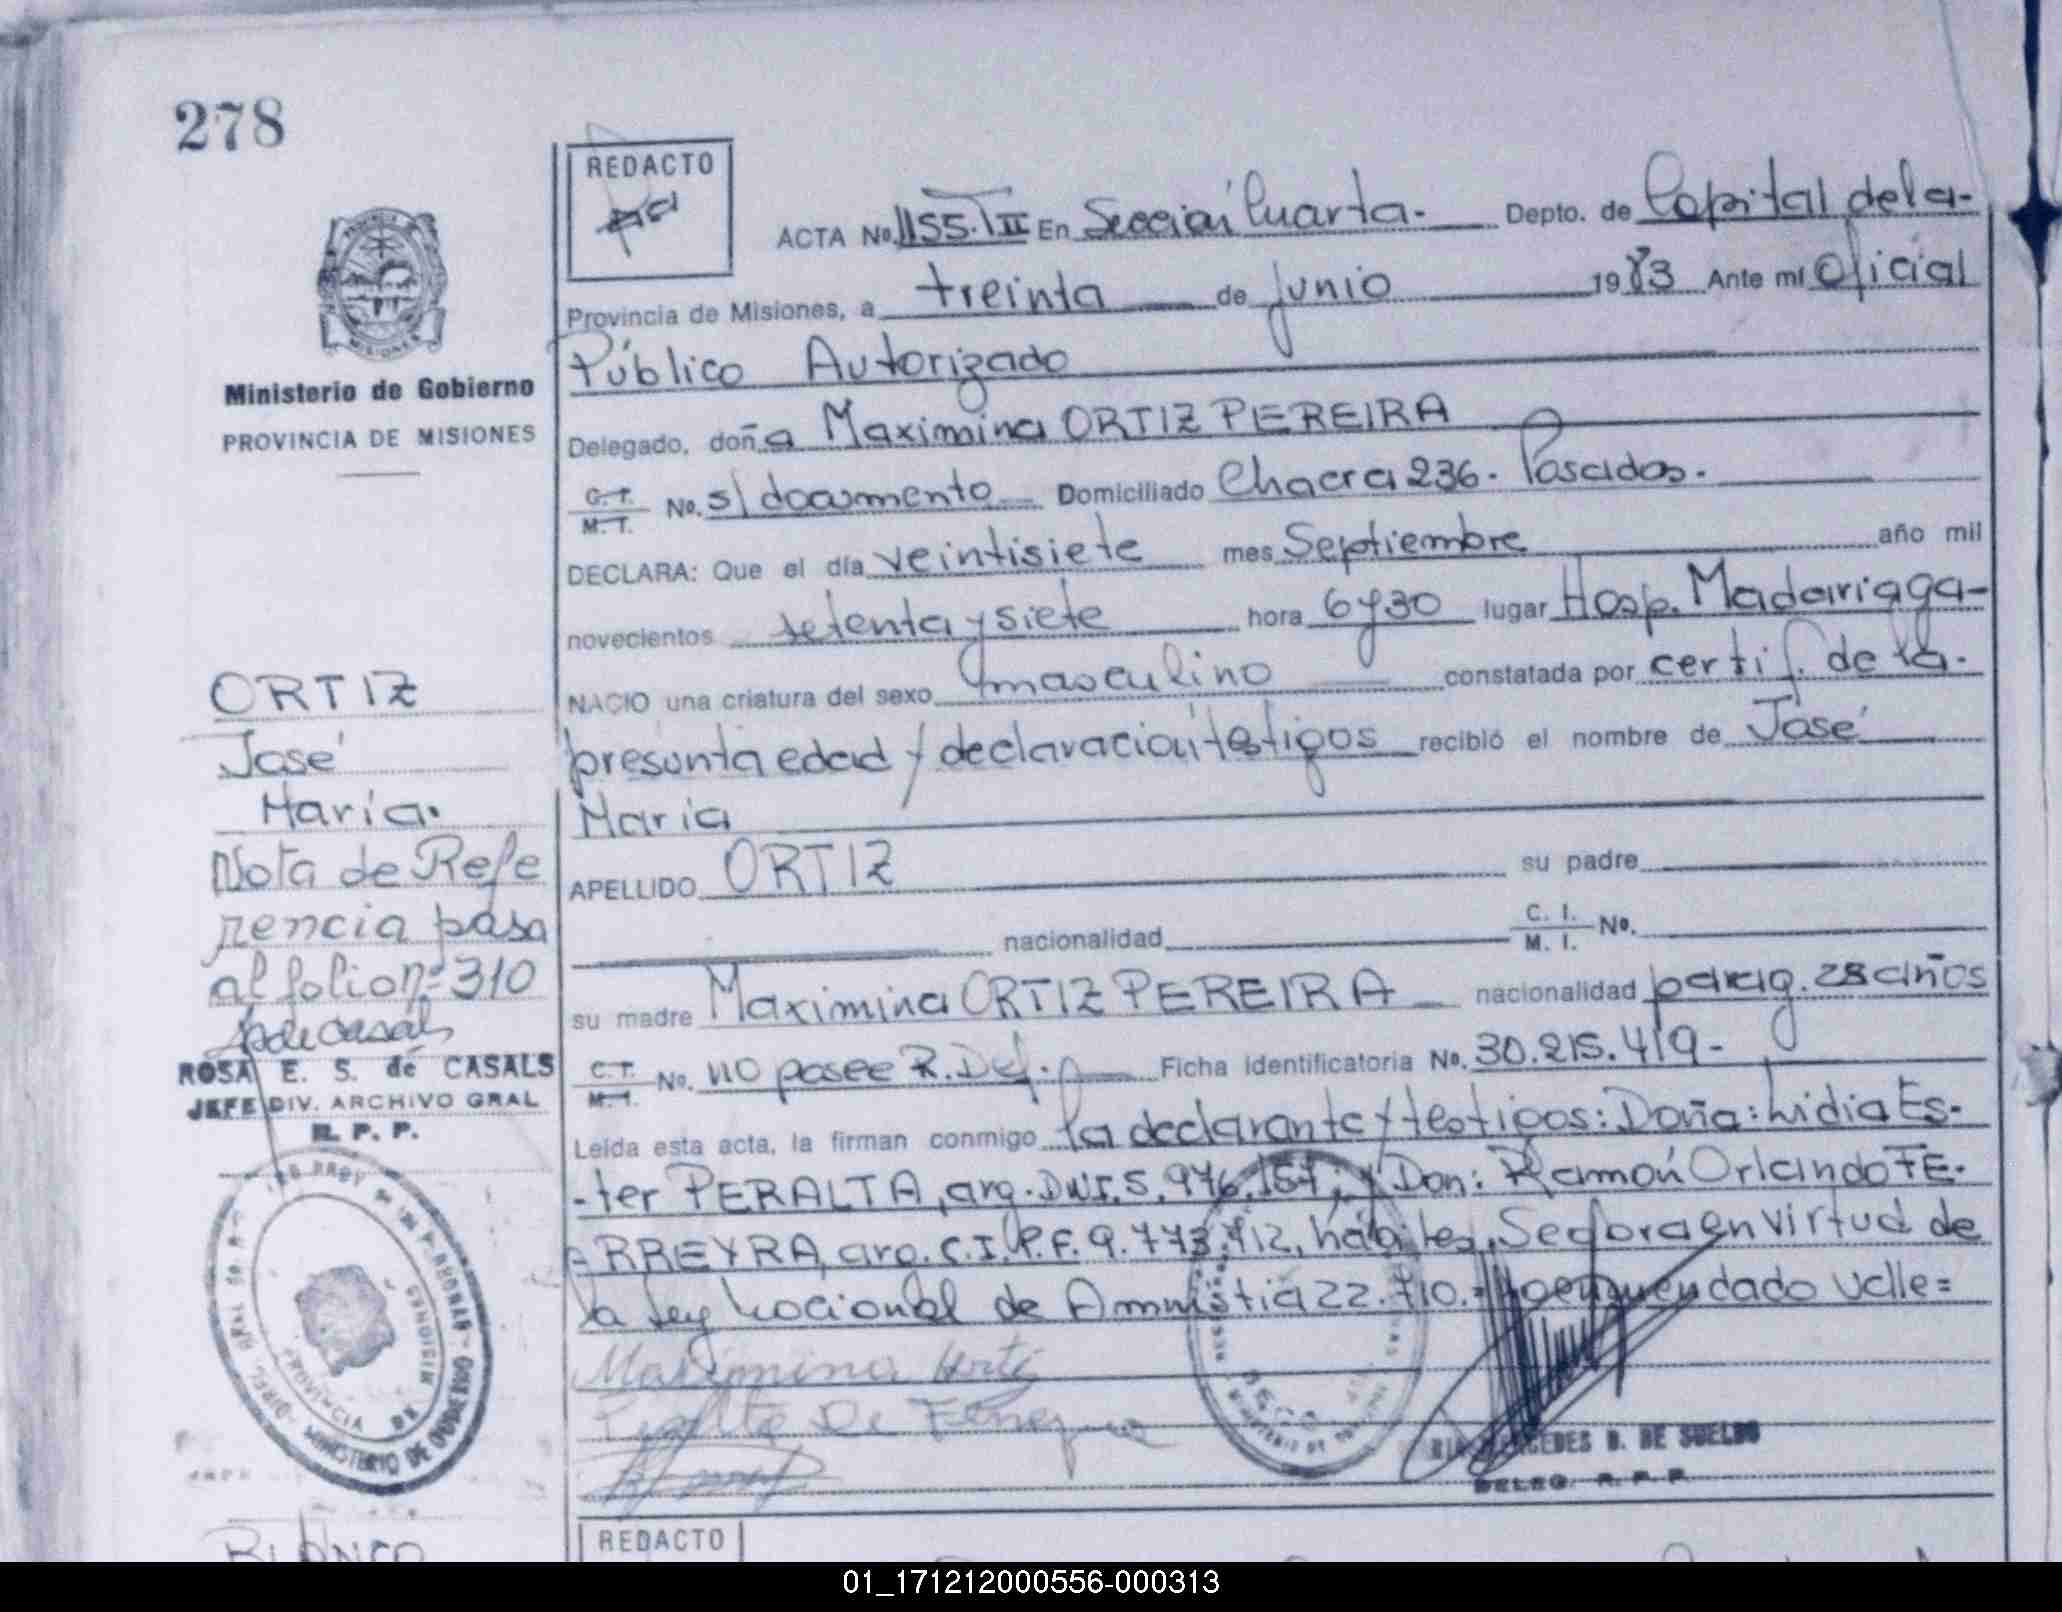 278
REDACTO
ACTA No. 1155.TII En Sección Cuarta. Depto. de Capital de la-
Provincia de Misiones, a treinta de Junio 1983 Ante mi Oficial
Público Autorizado
Ministerio de Gobierno
PROVINCIA DE MISIONES
Delegado, doña Maximina ORTIZ PEREIRA
C. I.
M. I. No. s/documento Domiciliado Chacra 236. Posadas.
DECLARA: Que el día veintisiete mes Septiembre año mil
novecientos setenta y siete hora 6 y 30 lugar Hosp. Madariaga-
NACIO una criatura del sexo masculino constatada por certif. de la.
presunta edad y declaración testigos recibió el nombre de José
María
APELLIDO ORTIZ su padre
nacionalidad C. I.
M. I. No.
su madre Maximina ORTIZ PEREIRA nacionalidad parag. 28 años
C. I.
M. I. No. no posee R. Def. Ficha identificatoria No. 30.215.419-
Leída esta acta, la firman conmigo la declarante y testigos: Doña: Lidia Es-
-ter PERALTA, arg. DNI. 5.976.157; y Don: Ramón Orlando FE-
=RREYRA, arg. C.I. P.F. 9.773.712, hábiles, Se labora en virtud de
la Ley Nacional de Amnistía 22.710.= enmendado Valle=
Maximina Orti
MERCEDES B. DE SUELDO
DELEG. R. P. P.
ORTIZ
José
María.
Nota de Refe
rencia pasa
al folio nº 310
ROSA E. S. de CASALS
JEFE DIV. ARCHIVO GRAL
R. P. P.
MINISTERIO DE GOBIERNO
PROVINCIA DE
REDACTO
01_171212000556-000313